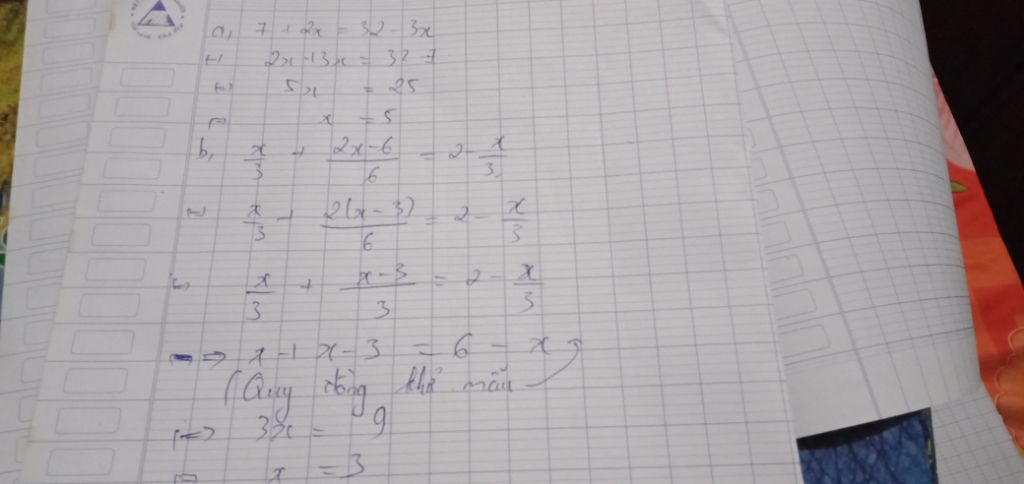 a, 7 + 2x = 32 - 3x
⇔ 2x + 3x = 32 - 7
⇔ 5x = 25
⇔ x = 5
b, x/3 + (2x-6)/6 = 2 - x/3
⇔ x/3 + 2(x-3)/6 = 2 - x/3
⇔ x/3 + (x-3)/3 = 2 - x/3
⇒ x + x - 3 = 6 - x
(Quy đồng khử mẫu)
⇔ 3x = 9
⇔ x = 3